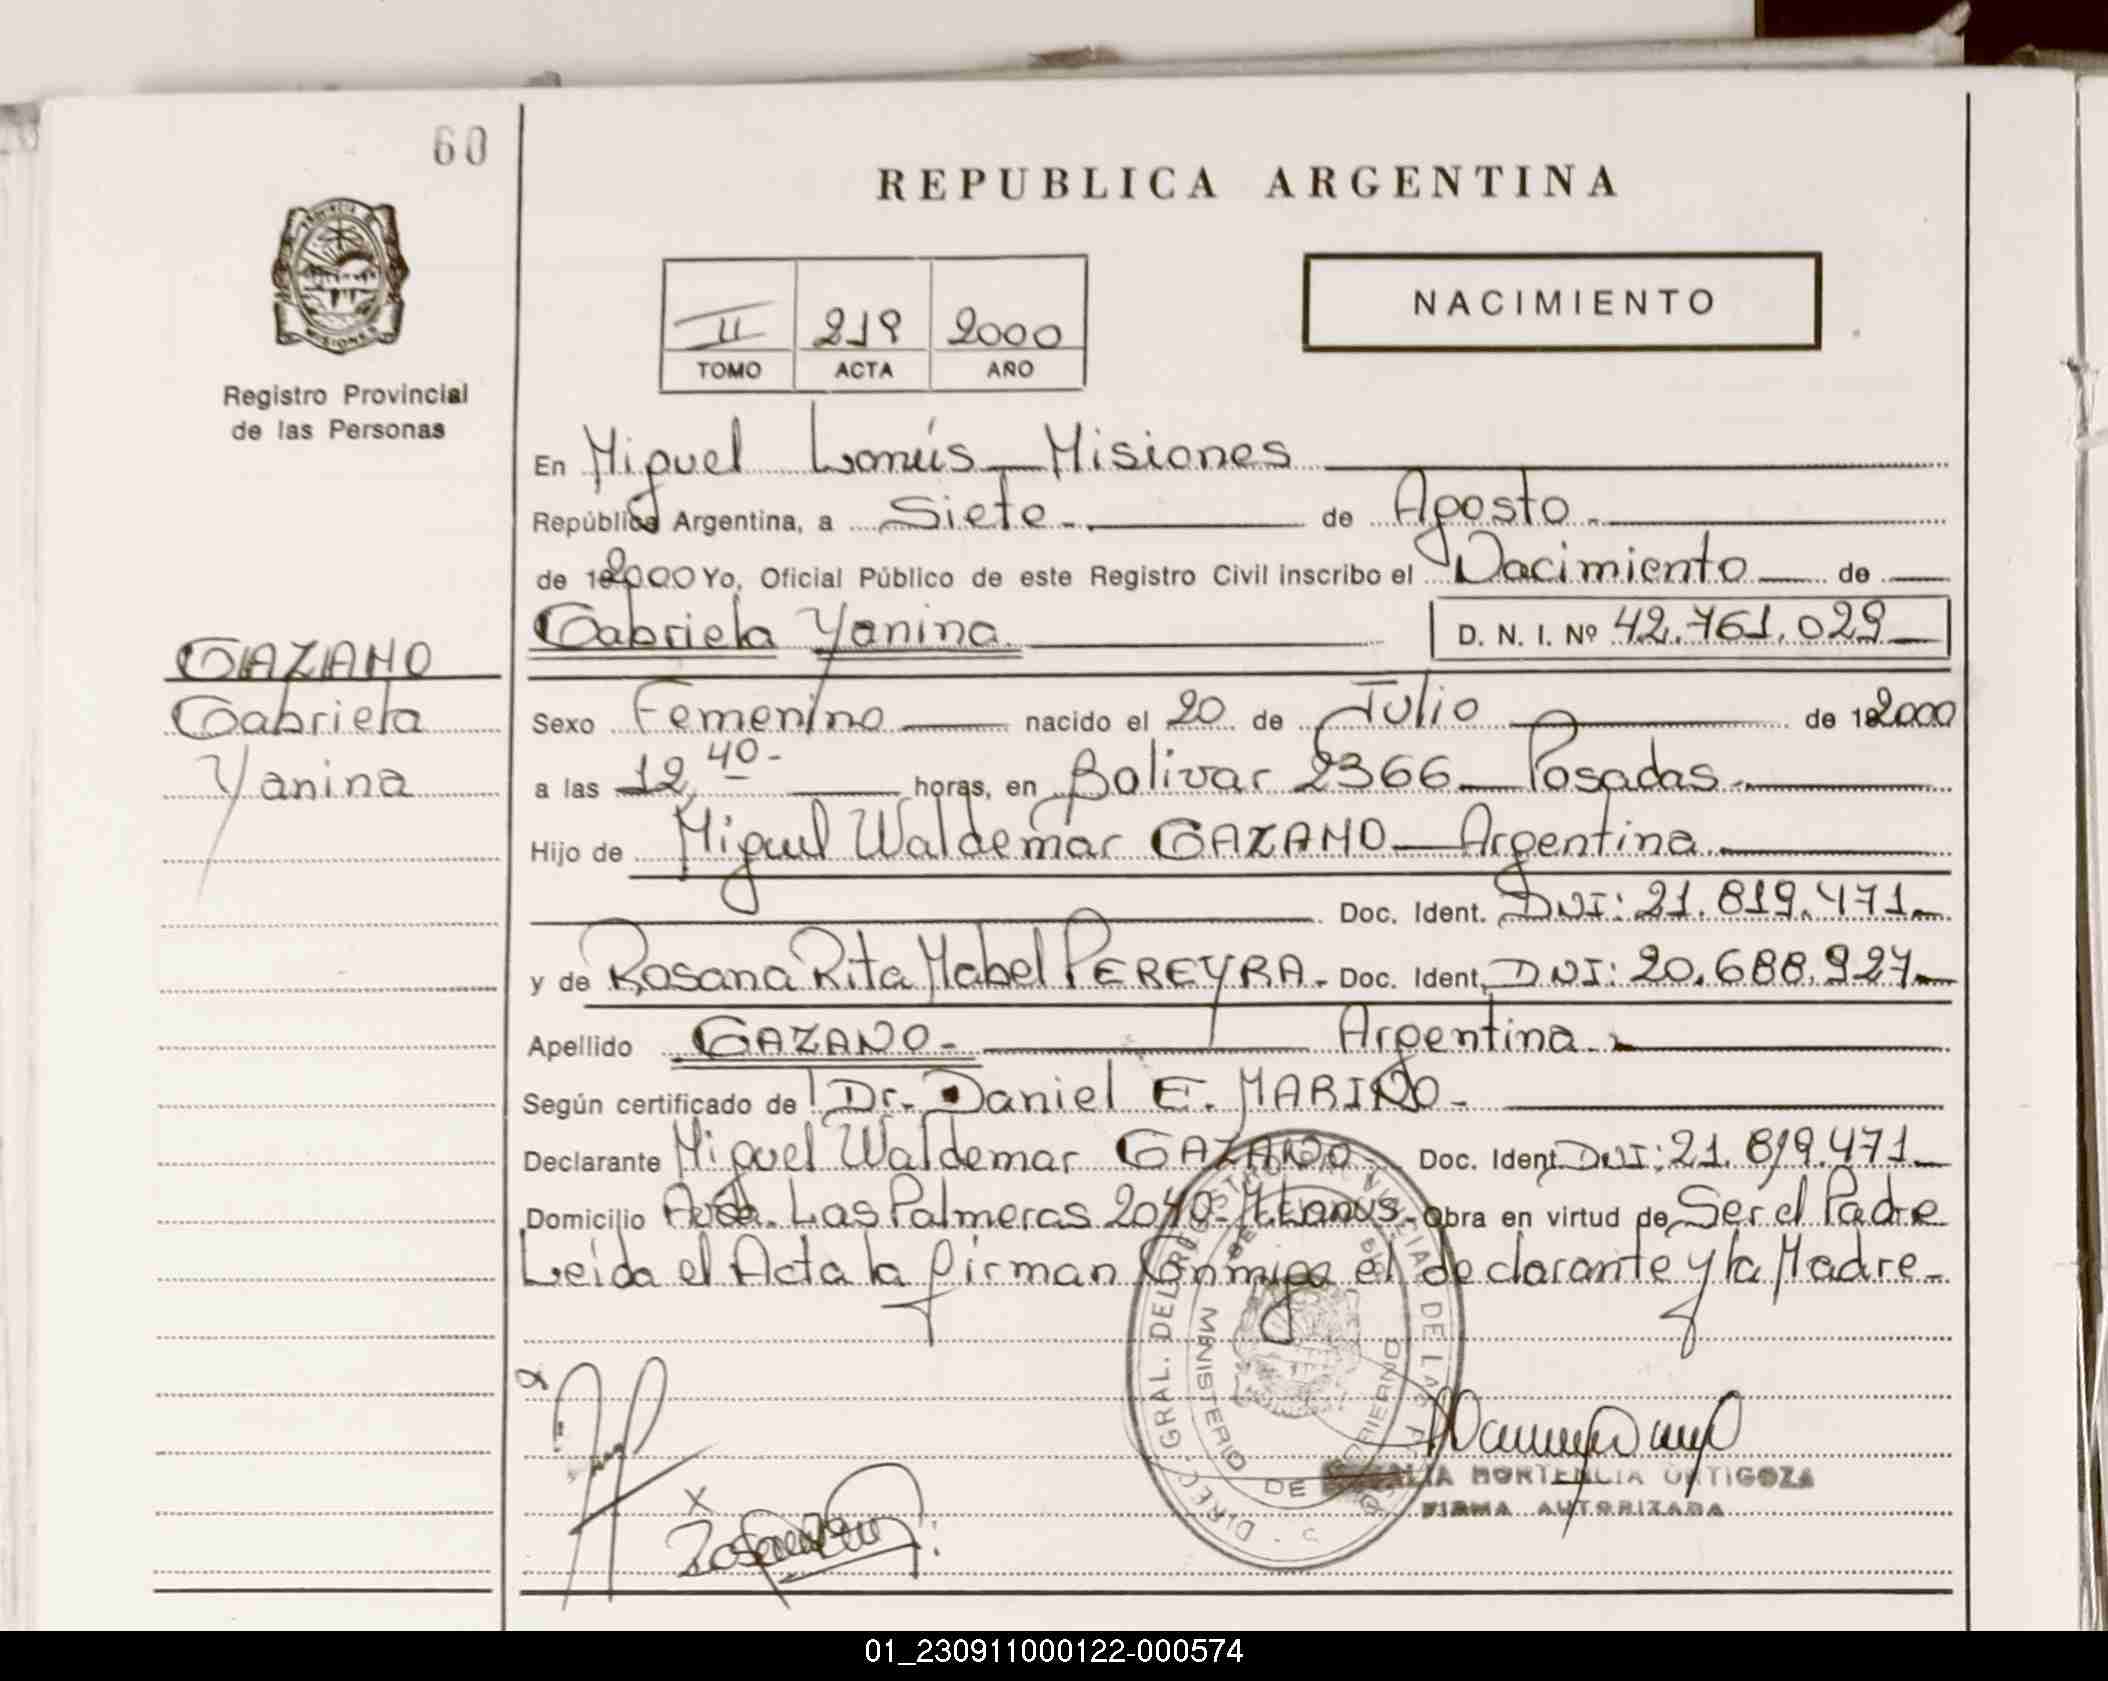 60
REPUBLICA ARGENTINA
PROVINCIA DE
MISIONES
Registro Provincial
de las Personas
II 219 2000
TOMO ACTA AÑO
NACIMIENTO
En Miguel Lanús - Misiones
República Argentina, a Siete - de Agosto -
de 19 2000 Yo, Oficial Público de este Registro Civil inscribo el Nacimiento de
Gabriela Yanina D. N. I. Nº 42.761.029
GAZANO
Gabriela
Yanina
Sexo Femenino nacido el 20 de Julio de 19 2000
a las 12,40- horas, en Bolivar 2366 - Posadas -
Hijo de Miguel Waldemar GAZANO - Argentina -
Doc. Ident. DNI: 21.819.471 -
y de Rosana Rita Mabel PEREYRA - Doc. Ident. DNI: 20.688.927 -
Apellido GAZANO - Argentina -
Según certificado de Dr. Daniel E. MARINO -
Declarante Miguel Waldemar GAZANO Doc. Ident DNI: 21.819.471 -
Domicilio Avda. Las Palmeras 2040 - M. Lanus - Obra en virtud de Ser el Padre
Leida el Acta la firman Conmigo el declarante y la Madre -
DIREC. GRAL. DEL REGISTRO PROVINCIAL DE LAS
MINISTERIO DE GOBIERNO
X
HORTENCIA ORTIGOZA
FIRMA AUTORIZADA
01_230911000122-000574